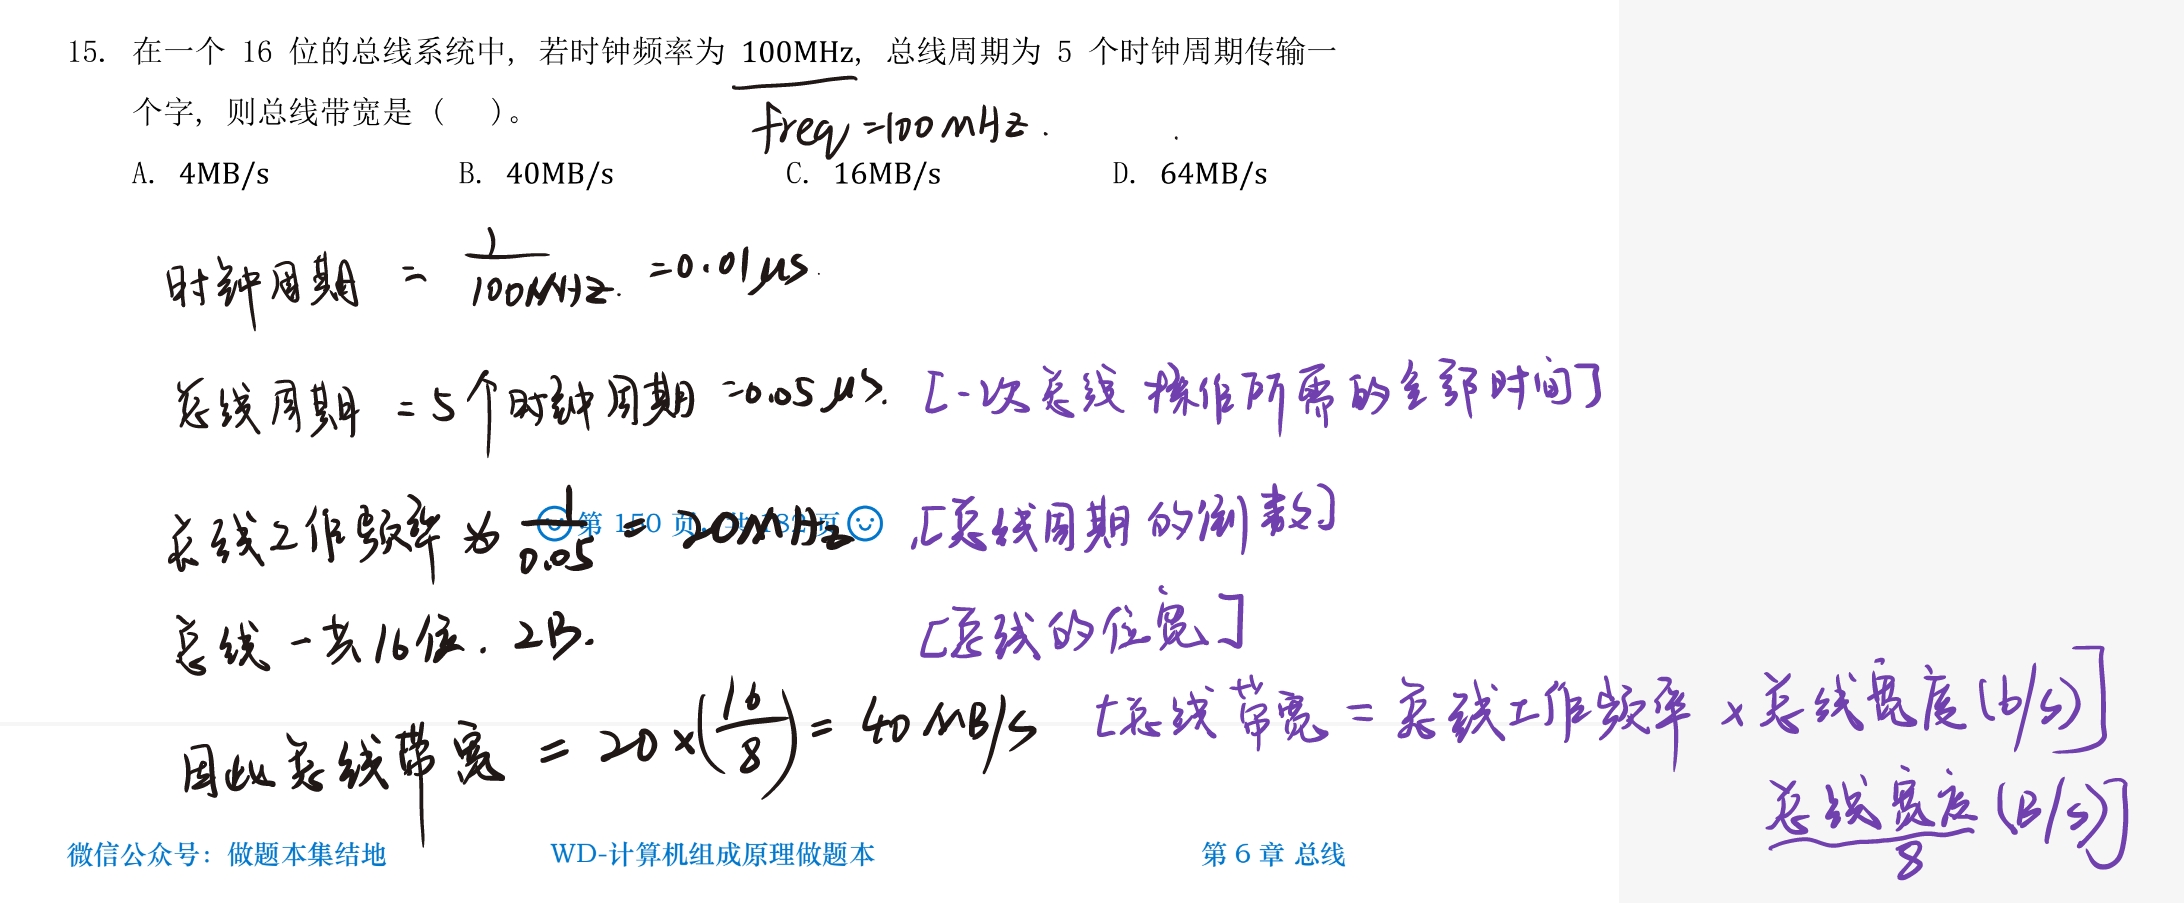 15. 在一个 16 位的总线系统中, 若时钟频率为 100MHz, 总线周期为 5 个时钟周期传输一
个字, 则总线带宽是 (   )。
freq=100MHz.
A. 4MB/s B. 40MB/s C. 16MB/s D. 64MB/s
时钟周期 = 1/100MHz. = 0.01μs.
总线周期 = 5个时钟周期 = 0.05μs. [一次总线操作所需的全部时间]
总线工作频率为 1/0.05 = 20MHz [总线周期的倒数]
第 150 页, 共 182 页
总线一共16位. 2B. [总线的位宽]
因此总线带宽 = 20×(16/8) = 40MB/s [总线带宽 = 总线工作频率 × 总线宽度(b/s)]
总线宽度/8 (B/s)]
微信公众号: 做题本集结地 WD-计算机组成原理做题本 第 6 章 总线